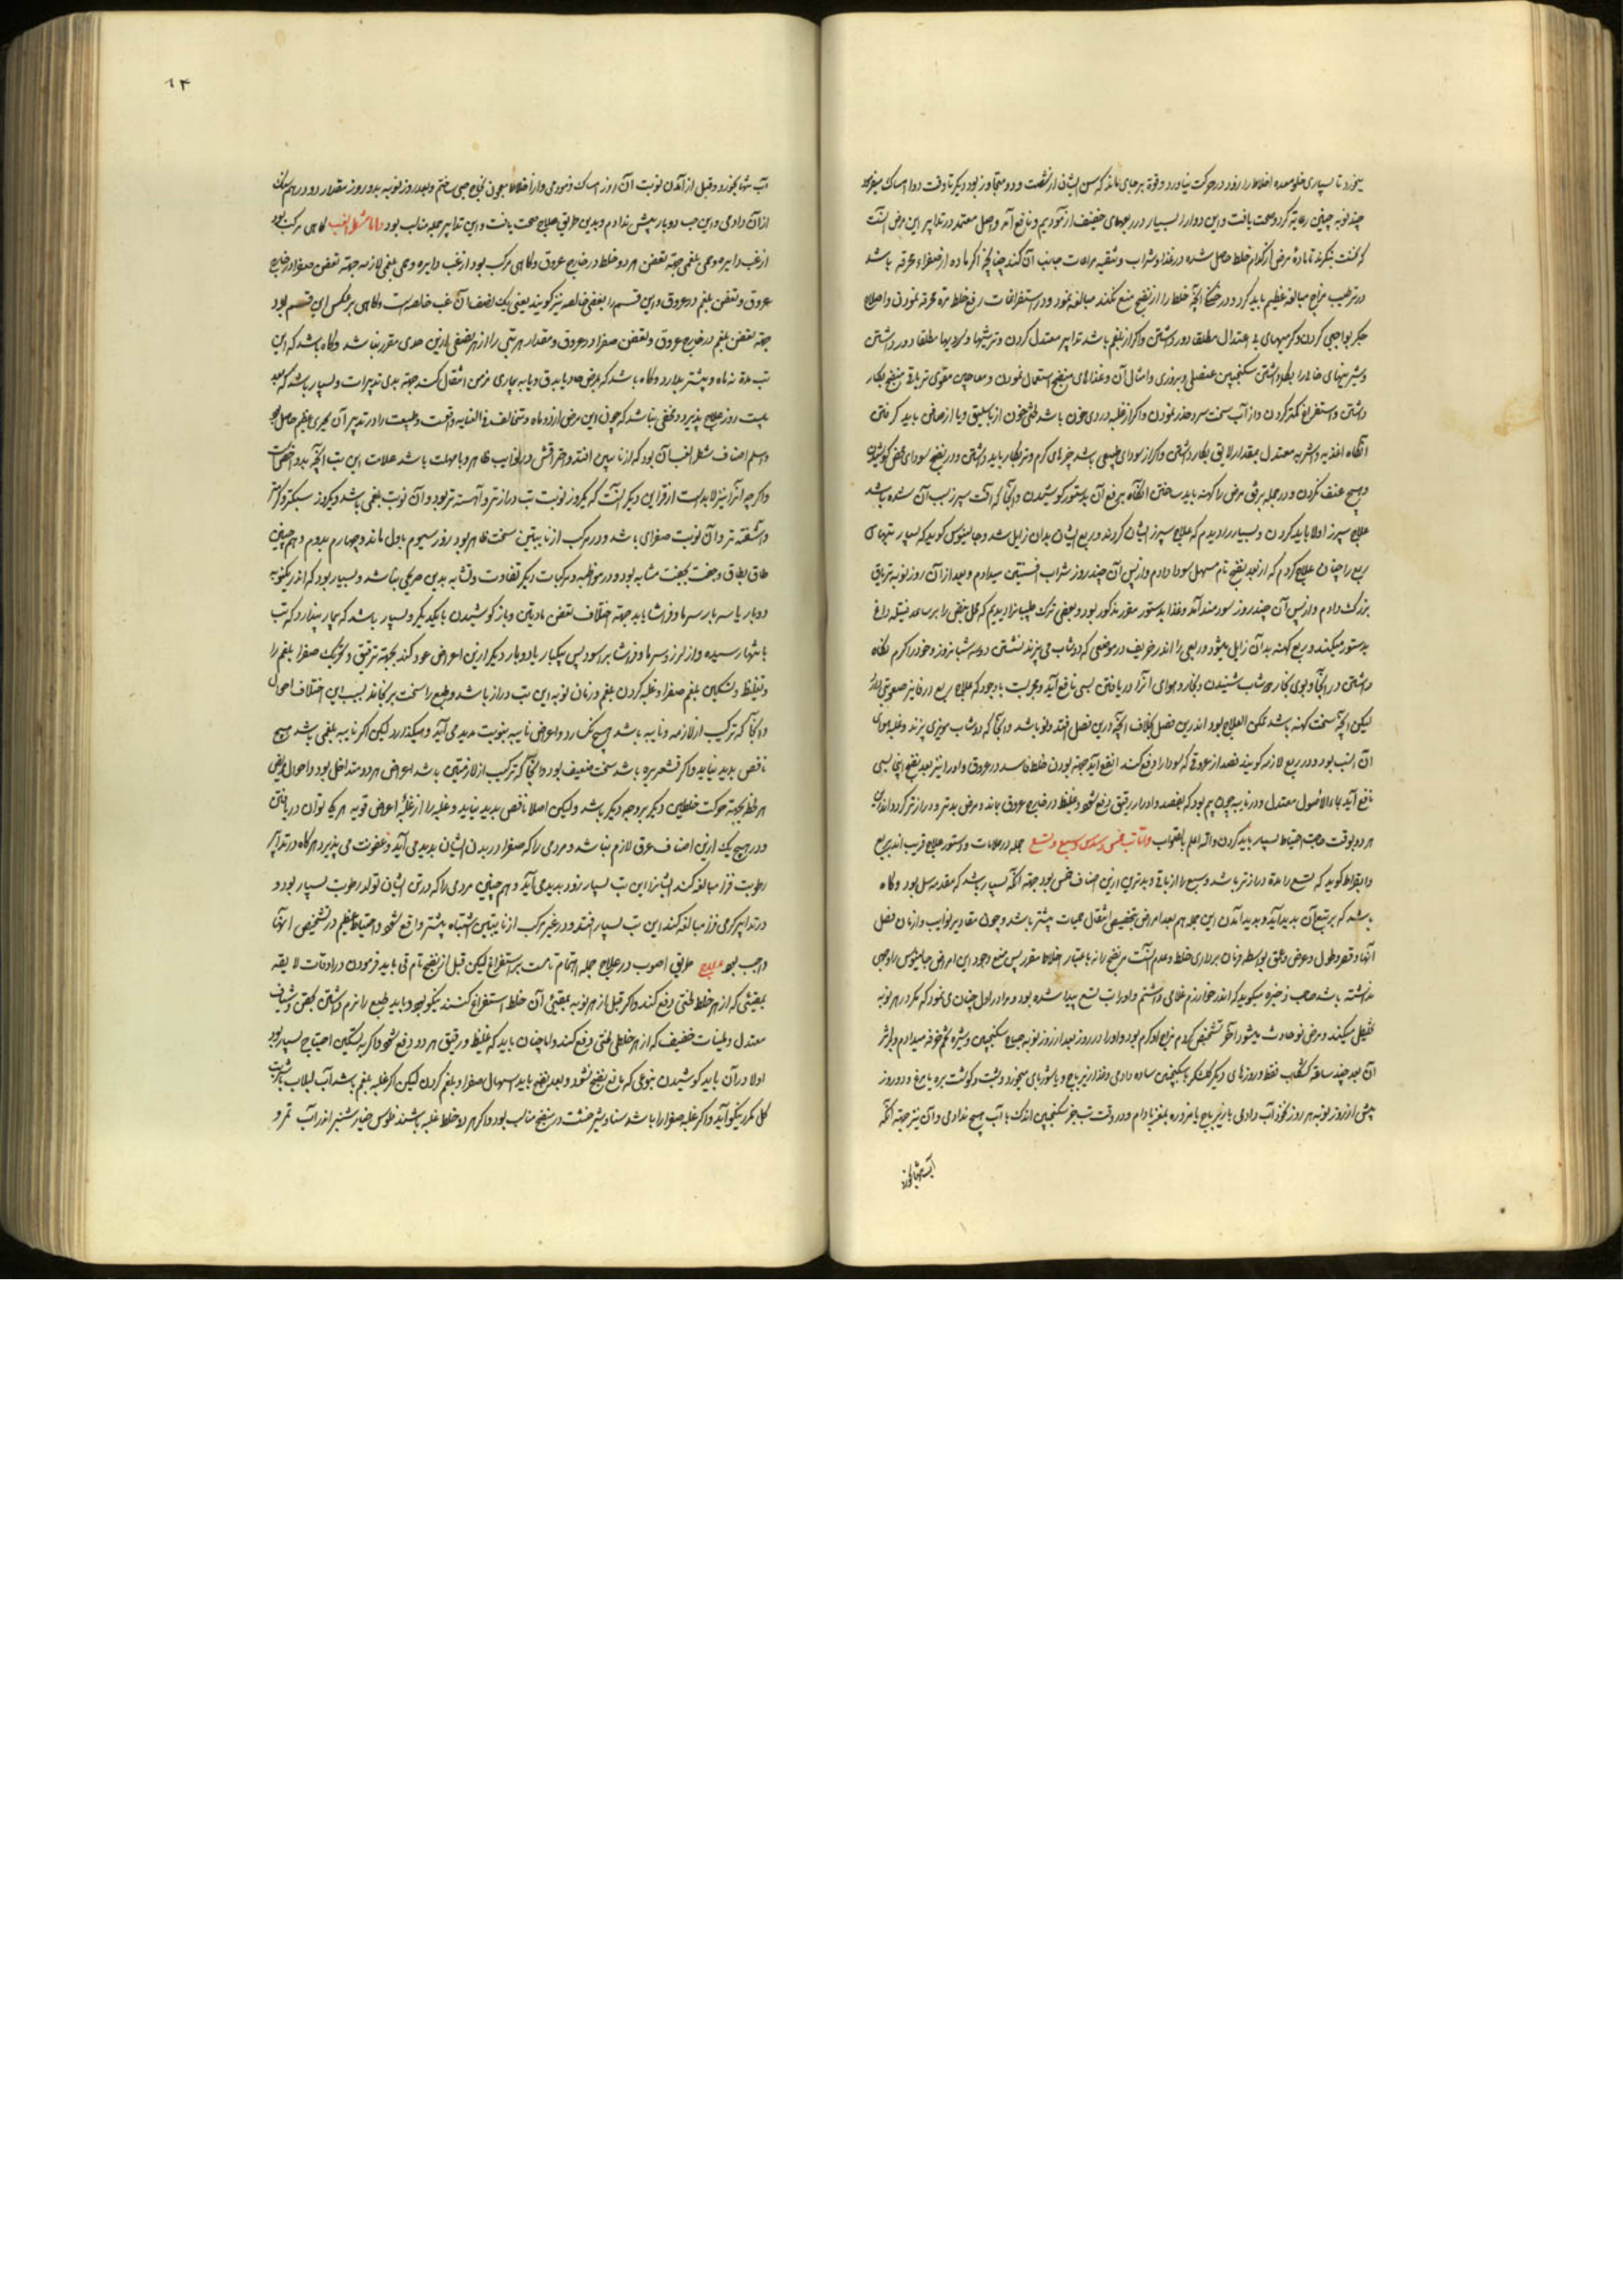 چند نوبه چنین رعایة کرد و صحت یافت و این دوا را بسیار در ربعهای خفیف آزمودیم و نافع آمد و اصل معتمد در تدابیر این مرض آنست
که نخست بنگرند تا مادهٔ مرض از کدام خلط حاصل شده در غذا و شراب و تنقیه مراعات جانب آن کند چنانچه اگر ماده از صفراء محرقه باشد
در ترطیب مزاج مبالغه عظیم باید کرد و در خنکی آنچه خلط را از نضج منع نکند مبالغه نمود و در استفراغات رفع خلط مرهٔ محرقه نمودن و اصلاح
جگر بواجبی کردن و گرمیهای بی اعتدال مطلقا دور داشتن و اگر از بلغم باشد تدابیر معتدل کردن و ترشیها و سردیها مطلقا دور داشتن
و شیرینیهای را بکار داشتن سکنجبین عنصلی و بزوری و امثال آن و غذاهای منضج استعمال نمودن و معاجین مقوی تریاقی منضج بکار
داشتن و استفراغ کمتر کردن و از آب سخت سرد حذر نمودن و اگر از غلبه دردی خون باشد لختی خون از باسلیق و یا از صافن باید گرفتن
آنگاه اغذیه و اشربه معتدل بمقدار لایق بکار داشتن و اگر از سودای طبیعی باشد چیزهای گرم و تر بکار باید داشتن و در نضج سودای محض کوشیدن
و هیچ عنف نکردن و در جمله برفق مرض را کهنه باید ساختن آنگاه برفع آن بدستور کوشیدن و آنجا که آفت سپرز سبب آن شده باشد
علاج سپرز اولا باید کردن و بسیار را دیدم که علاج سپرز ایشان کردند و ربع ایشان بدان زایل شد و جالینوس گوید که بسیار تبهای
ربع را چنان علاج کردم که از بعد نضج تام مسهل سودا دادم و از پس آن چند روز شراب افسنتین میدادم و بعد از آن روز نوبه تریاق
بزرگ دادم و از پس آن چند روز سودمند آمد و غذا بدستور مقرر مذکور بود و بعضی ترک طبیب را دیدیم که محل نبض را بر ساعد فتیله داغ
بدستور میکنند و ربع کهنه بدان زایل میشود و ربعی را اندر خریف در موضعی که دوشاب می پزند نشستن دو سه شبانروز و خود را گرم نگاه
داشتن در آنجا و بوی بخار دوشاب شنیدن و بخار و هوای آنرا دریافتن بسی نافع آید و مجربست با وجود که علاج ربع در خانیز صعوبتی دارد
لیکن آنچه سخت کهنه باشد ممکن العلاج بود اندرین فصل بخلاف آنچه درین فصل افتد و نو باشد و آنجا که دوشاب مویزی پزند و غلبه هوای
آن انسب بود و در ربع لازمه گویند فصد از عروقی که سودا را دفع کند انفع آید جهة بودن خلط فاسد در عروق و ادرار نیز بعد نضج اینجا بسی
نافع آید بماء الاصول معتدل و در نایبه چون بیم بود که بفصد و ادرار رقیق دفع شود و غلیظ در خارج عروق بماند و مرض بدتر و درازتر گردد اندرین
هر دو بوقت حاجت احتیاط بسیار باید کردن و الله اعلم بالصواب و اما تب خمس و سدس و سبع و تسع جمله در علامات و دستور علاج قریب اند بربع
و ابقراط گوید که تسع را مدة درازتر باشد و سبع را از باقی و بدترین ازین اصناف خمس بود جهة آنکه بسیار باشد که مقدمه سل بود و گاه
باشد که بر تبع آن پدید آید و پدید آمدن این جمله هم بعد امراض بتخصیص انتقال حمیات بیشتر باشد و چون مقادیر نوایب و ازمان فصل
نداشته باشد صاحب ذخیره میگوید که اندر خوارزم غلامی داشتم و او را تب تسع پیدا شده بود و مرا در اول چنان می نمود که مگر در هر نوبه
تخلیطی میکند و مرض نو حادث میشود آخر تشخیص کردم مزاج او گرم بود و او را در روز بعد از روز نوبه صباح سکنجبین و شیره تخم خرفه میدادم و بر اثر
آن بعد چند ساعة کشکاب فقط و روزهای دیگر گلشکر با سکنجبین ساده دادمی و غذا زیرباج و یا شوربای میخورد و شبت و گوشت بره یا مرغ و در روز
پیش از روز نوبه هر روز نخود آب دادمی یا زیرباج یا مزوره بمغز بادام و در وقت تب جز سکنجبین اندک با آب هیچ ندادمی و آن نیز جهة آنکه
آب تنها نخورد
۹۴
آب تنها نخورد و قبل از آمدن نوبت آن روز امساک فرمودمی
از آن دادمی و این حب دو بار بیش ندادم و بدین طریق علاج صحت یافت و این تدابیر جمله مناسب بود و اما شطر الغب گاهی مرکب بود
از غب دایره و حمی بلغمی جهة تعفن هر دو خلط در خارج عروق و گاهی مرکب بود از غب دایره و حمی بلغمی لازمه جهة تعفن صفرا در خارج
عروق و تعفن بلغم در عروق و این قسم را بعضی خالصه نیز گویند یعنی یک نصف آن غب خالصه است و گاهی بر عکس این قسم بود
جهة تعفن بلغم در خارج عروق و تعفن صفرا در عروق و مقدار هر تبی را از هر صنفی ازین حدی مقرر نباشد و گاه باشد که این
تب مدة نه ماه و بیشتر بدارد و گاه باشد که بمرض حاد یا بدق و یا به بیماری مزمن انتقال کند جهة بدی تدبیرات و بسیار باشد که بعد
بیست روز علاج پذیرد و مخفی نباشد که چون این مرض از دو ماده
و اسلم اصناف شطر الغب آن بود که از نایبتین افتد
و اگر چه آنرا نیز لابد است از قراین دیگر آنست که یکروز نوبت تب درازتر و آهسته تر بود و آن نوبت بلغمی باشد و یکروز سبکتر و گرمتر
و آشفته تر و آن نوبت صفرای باشد و در مرکب از نایبتین سخت ظاهر بود روز سیوم باول ماند و چهارم بدوم و همچنین
طاق بطاق و جفت بجفت مشابه بود و در مواظبه و مرکبات دیگر تفاوت و تشابه بدین صریحی نباشد و بسیار بود که اندر یکنوبه
دوبار یا سه بار سرما و فراشا یابد جهة اختلاف تعفن مادتین و باز کوشیدن با یکدیگر و بسیار باشد که بیمار پندارد که تب
بانتها رسیده و از لرز و سرما و فراشا برآسود پس یکبار یا دو بار دیگر ازین اعراض عود کند بجهة ترقیق و تحریک صفرا بلغم را
و تغلیظ و تسکین بلغم صفرا و غلبه کردن بلغم و زمان نوبه این تب دراز باشد و طبع را سخت برنجاند بسبب این اختلاف احوال
و آنجا که ترکیب از لازمه و نایبه باشد هیچ نگسارد و اعراض نایبه بنوبت پدید می آید و میگذارد لیکن اگر نایبه بلغمی باشد هیچ
ناقض پدید نیاید و اگر قشعریره باشد سخت ضعیف بود و آنجا که ترکیب از لازمتین باشد اعراض هر دو متداخل بود و احوال مریض
هر لحظه بجهة حرکت خلطین دیگر بر وجه دیگر باشد ولیکن اصلا ناقض پدید نیاید و غلبه را از غلبهٔ اعراض قویه هر یک توان دریافتن
و در هیچ یک ازین اصناف عرق لازم نباشد و مردمی را که صفرا در بدن ایشان پدید می آید و عفونت می پذیرد هر گاه در تدابیر
رطوبت فزا مبالغه کنند ایشانرا این تب بسیار زود پدید می آید و همچنین مردمی را که در تن ایشان تولد رطوبت بسیار بود و
در تدابیر گرمی فزا مبالغه کنند این تب بسیار افتد و در غیر مرکب از نایبتین اشتباه بیشتر واقع شود و احتیاط عظیم در تشخیص آنها
واجب بود علاج طریق اصوب در علاج جمله اهتمام تامست بر استفراغ لیکن قبل از نضج تام قی باید فرمودن در اوقات لایقه
بمقیئی که از هر خلط لختی دفع کند و اگر قبل از هر نوبه بمقیئی آن خلط استفراغ کنند نیکو بود و باید طبع را نرم داشتن بحقن و شیاف
معتدل و ملینات خفیف که از هر خلطی لختی دفع کنند و اما چنان باید که غلیظ و رقیق هر دو دفع شود و اگر به تسکین احتیاج بسیار بود
اولا در آن باید کوشیدن بنوعی که مانع نضج نشود و بعد نضج باید اسهال صفرا و بلغم کردن لیکن اگر غلبه بلغم باشد آب لبلاب با شربت
گل مکرر نیکو آید و اگر غلبه صفرا را باشد سنا و شیر خشت در مناسب بود و اگر هر دو خلط غلبه باشند فلوس خیار شنبر اندر آب تمر و